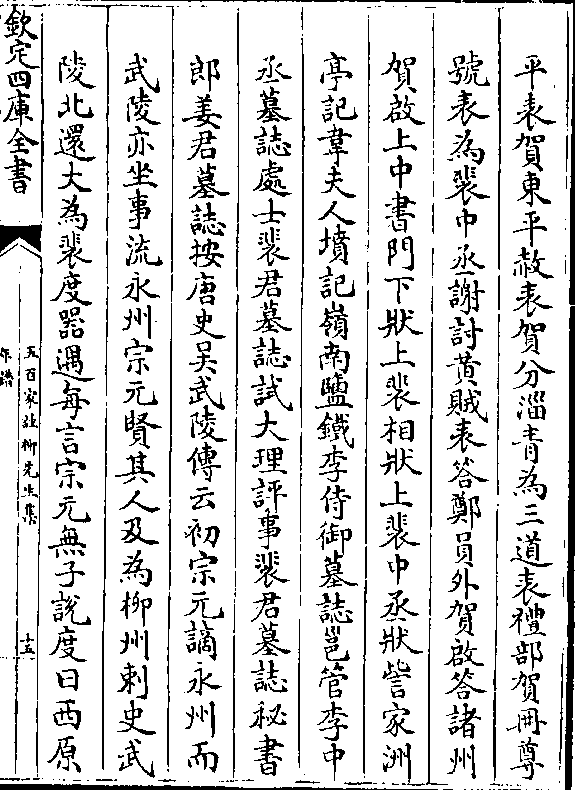 平表賀東平赦表賀分淄青為三道表禮部賀冊尊
號表為裴中丞謝討黃賊表答鄭員外賀啟答諸州
賀啟上中書門下狀上裴相狀上裴中丞狀訾家洲
亭記韋夫人墳記嶺南鹽鐵李侍御墓誌邕管李中
丞墓誌處士裴君墓誌試大理評事裴君墓誌秘書
郎姜君墓誌按唐史吴武陵傳云初宗元謫永州而
武陵亦坐事流永州宗元賢其人及為柳州刺史武
陵北還大為裴度器遇每言宗元無子說度曰西原
欽定四庫全書
五百家注柳先生集
年譜
十五